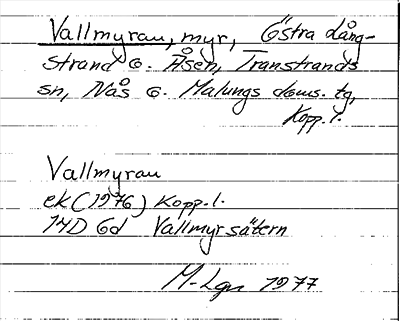 Vallmyrau, myr, Östra Lång-
strand o. Åsen, Transtrands
sn, Nås o. Malungs doms. tg,
Kopp. l.
Vallmyrau
ek (1976) Kopp. l.
14D 6d Vallmyrsätern
M-Lgn 1977